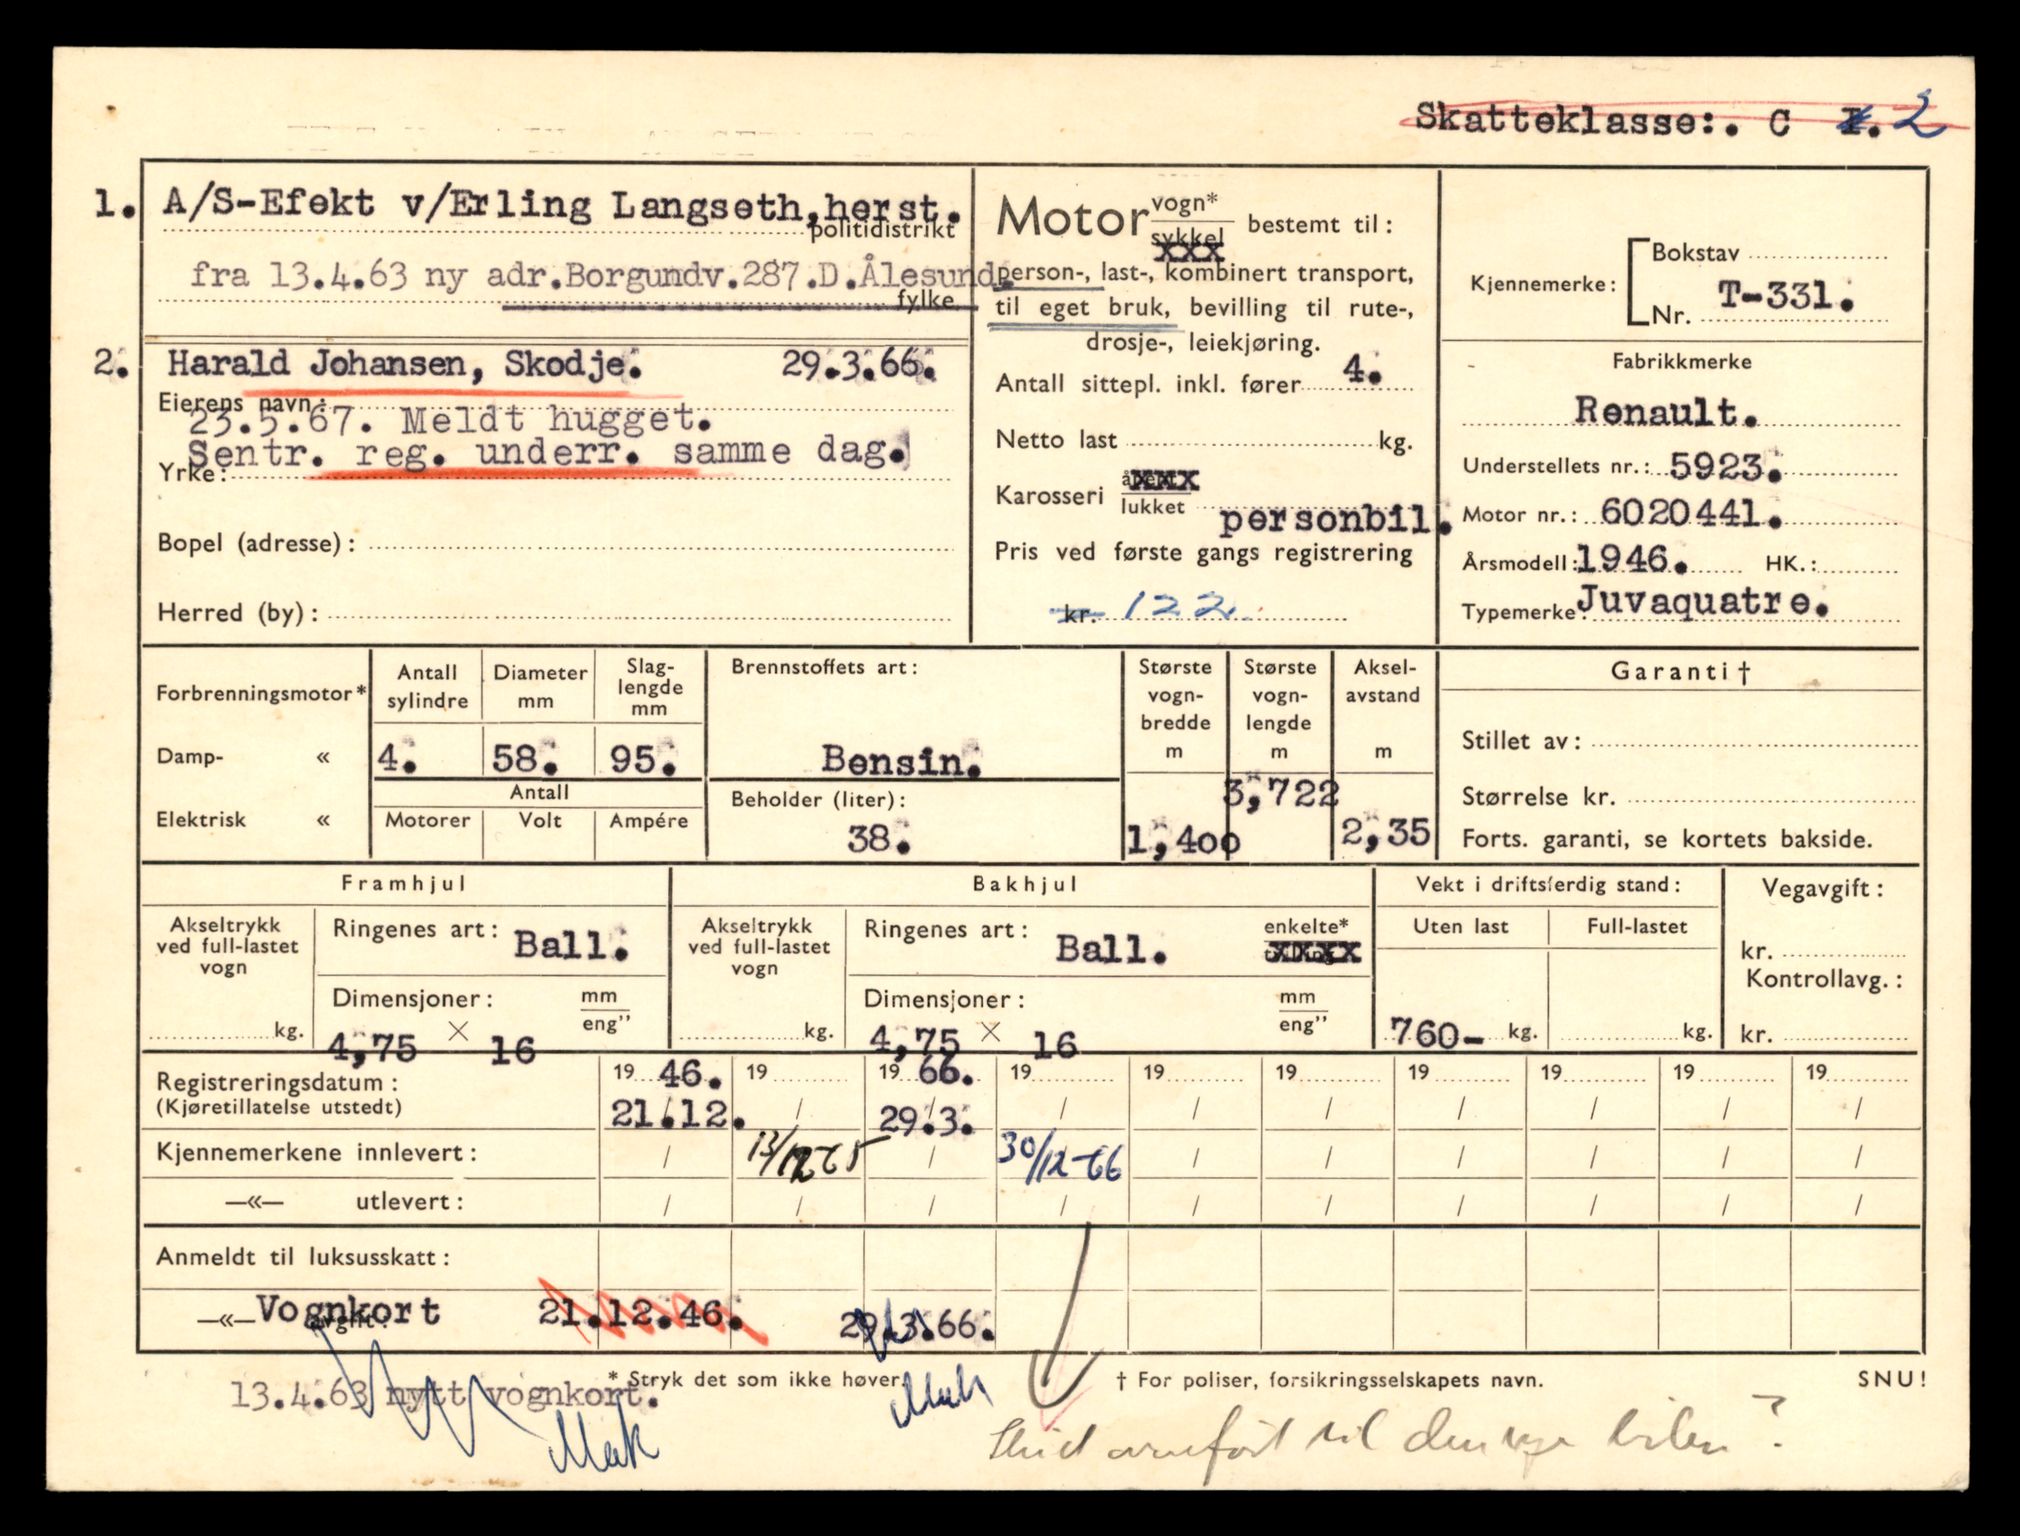 Skatteklasse:. C 2
1. A/S-Efekt v/Erling Langseth,herst.
politidistrikt
fra 13.4.63 ny adr.Borgundv.287.D.Ålesund.
fylke
2. Harald Johansen, Skodje. 29.3.66.
Eierens navn:
23.5.67. Meldt hugget.
Sentr. reg. underr. samme dag.
Yrke:
Bopel (adresse):
Herred (by):
Motor vogn* / sykkel xxx bestemt til:
person-, last-, kombinert transport,
til eget bruk, bevilling til rute-,
drosje-, leiekjøring.
Antall sittepl. inkl. fører 4.
Netto last kg.
Karosseri åpent xxx / lukket personbil.
Pris ved første gangs registrering
kr. 122.
Kjennemerke: Bokstav
Nr. T-331.
Fabrikkmerke
Renault.
Understellets nr.: 5923.
Motor nr.: 6020441.
Årsmodell: 1946. HK.:
Typemerke: Juvaquatre.
Forbrenningsmotor*
Damp- «
Elektrisk «
Antall sylindre
4.
Diameter mm
58.
Slag-
lengde
mm
95.
Antall
Motorer Volt Ampére
Brennstoffets art:
Bensin.
Beholder (liter):
38.
Største
vogn-
bredde
m
1,400
Største
vogn-
lengde
m
3,722
Aksel-
avstand
m
2,35
Garanti †
Stillet av:
Størrelse kr.
Forts. garanti, se kortets bakside.
Framhjul
Akseltrykk
ved full-lastet
vogn
kg.
Ringenes art: Ball.
Dimensjoner: mm / eng”
4,75 × 16
Bakhjul
Akseltrykk
ved full-lastet
vogn
kg.
Ringenes art: Ball. enkelte* xxxx
Dimensjoner: mm / eng”
4,75 × 16
Vekt i driftsferdig stand:
Uten last Full-lastet
760- kg. kg.
Vegavgift:
kr.
Kontrollavg.:
kr.
Registreringsdatum: 19 46. 19 19 66. 19 19 19 19 19 19 19
(Kjøretillatelse utstedt) 21.12. / 29.3. / / / / / / /
Kjennemerkene innlevert: / 13/12-65 / 30/12-66 / / / / / /
—«— utlevert: / / / / / / / / / /
Anmeldt til luksusskatt:
—«— Vognkort avgift: 21.12.46. 29.3.66.
* Stryk det som ikke høver. † For poliser, forsikringsselskapets navn. SNU!
13.4.63 nytt vognkort.
til den nye bilen?